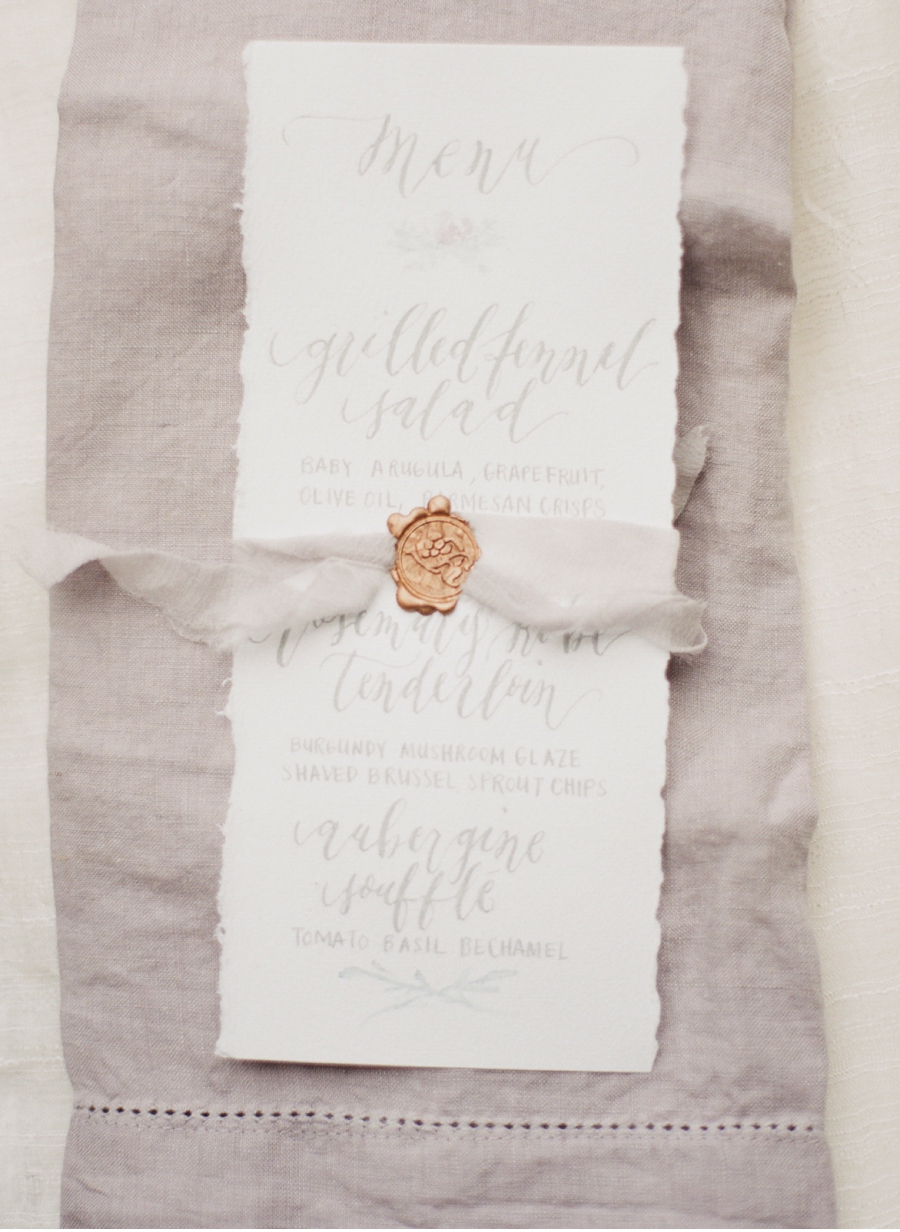 menu
grilled fennel
salad
BABY ARUGULA, GRAPEFRUIT,
OLIVE OIL, PARMESAN CRISPS
rosemary
tenderloin
BURGUNDY MUSHROOM GLAZE
SHAVED BRUSSEL SPROUT CHIPS
aubergine
soufflé
TOMATO BASIL BECHAMEL